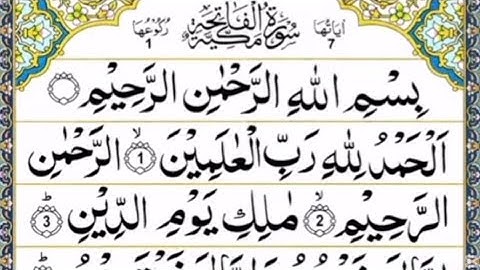 اٰیَاتُهَا 7 سُوْرَةُ الْفَاتِحَةِ مَكِّيَّةٌ رُكُوْعُهَا 1
بِسْمِ اللهِ الرَّحْمٰنِ الرَّحِيْمِ
اَلْحَمْدُ لِلّٰهِ رَبِّ الْعٰلَمِيْنَ ۙ 1 الرَّحْمٰنِ
الرَّحِيْمِ ۙ 2 مٰلِكِ يَوْمِ الدِّيْنِ ؕ 3